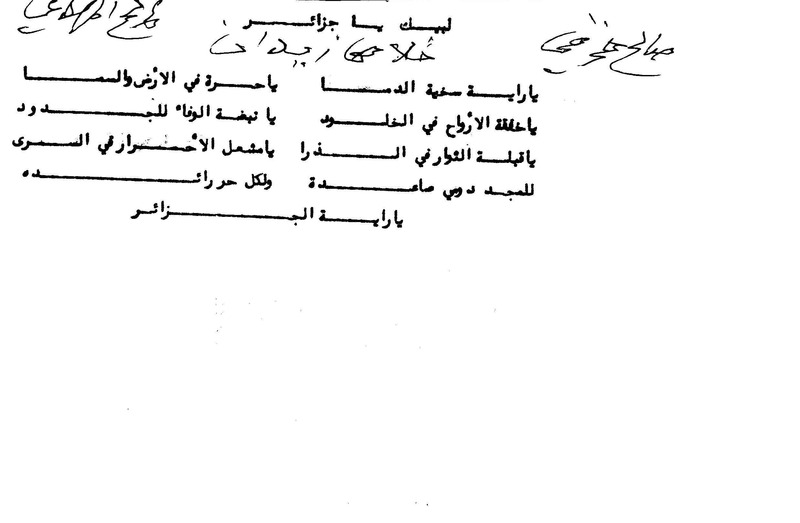 لبيك يا جزائر
صالح خرفي
يا راية سخية الدما يا حرة في الأرض والسما
يا خفقة الأرواح في الخلود يا نبضة الوفاء للجدود
يا قبلة الثوار في الذرا يا مشعل الأحرار في السرى
للمجد دومي صاعدة ولكل حر رائده
يا راية الجزائر